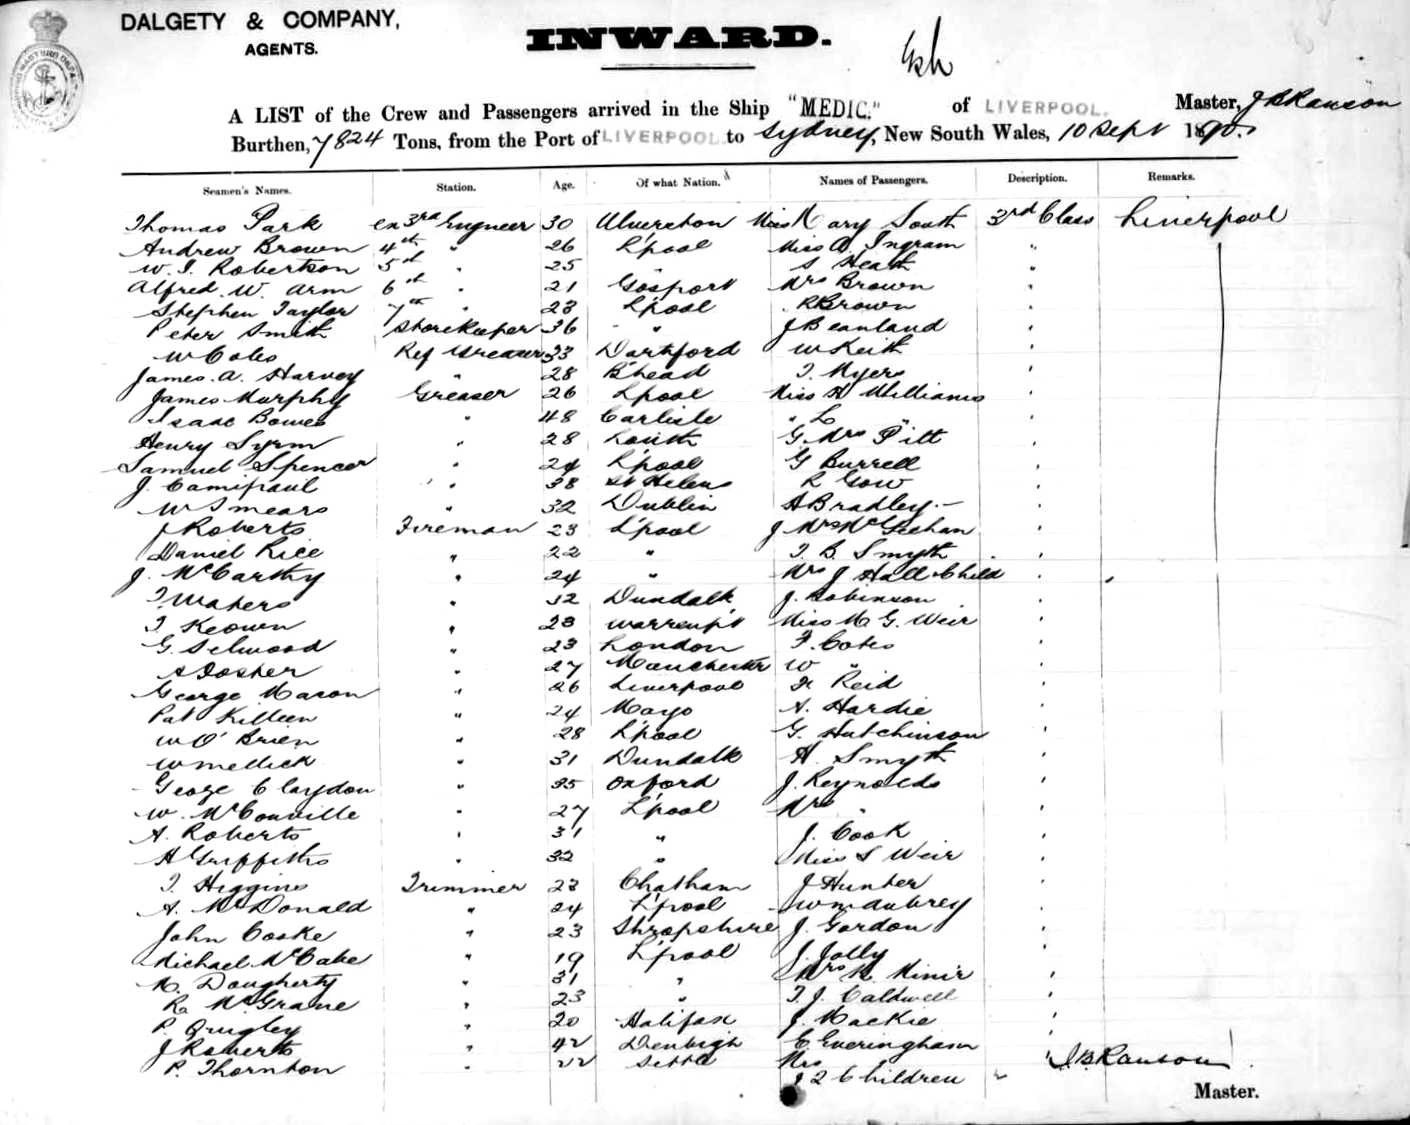 DALGETY & COMPANY,
AGENTS.
INWARD.
A LIST of the Crew and Passengers arrived in the Ship "MEDIC." of LIVERPOOL. Master, J B Ranson
Burthen, 7824 Tons, from the Port of LIVERPOOL to Sydney, New South Wales, 10 Sept 190
Seamen's Names. Station. Age. Of what Nation. Names of Passengers. Description. Remarks.
Thomas Park ex 3rd Engineer 30 Ulverston Miss Mary South 3rd Class Liverpool
Andrew Brown 4th " 26 L'pool Miss A. Ingram "
W. J. Robertson 5th " 25 " S Heath "
Alfred. W. Arm 6th " 21 Gosport Mrs Brown "
Stephen Taylor 7th " 23 L'pool R Brown "
Peter Smith Storekeeper 36 " J Beanland "
W Coles Ref Greaser 33 Dartford W Keith "
James. A. Harvey " 28 B'head T. Myers "
James Murphy Greaser 26 L'pool Miss H Williams "
Isaac Bowes " 48 Carlisle " L " "
Henry Syrm " 28 Louth G. Mrs Pitt "
Samuel Spencer " 24 L'pool G Burrell "
J. " 38 St Helens R Gow "
W Smears " 32 Dublin A Bradley "
J Roberts Fireman 23 L'pool J Mrs McGeehan "
Daniel Rice " 22 " T. B. Smyth "
J. McCarthy " 24 " Mrs J Hall & Child "
T. Waters " 32 Dundalk J. Robinson "
T Keown " 23 Miss M G. Weir "
G. Selwood " 23 London F. Cotes "
A " 27 Manchester W " "
George Mason " 26 Liverpool Reid "
Pat Killeen " 24 Mayo A. Hardie "
W O'Brien " 28 L'pool G. Hutchinson "
W Mellick " 31 Dundalk H. Smyth "
George Claydon " 35 Oxford J. Reynolds "
W. McConville " 27 L'pool Mrs " "
A. Roberts " 31 " J. Cook "
H Griffiths " 32 " Miss S Weir "
T. Higgins Trimmer 23 Chatham J Hunter "
A. McDonald " 24 L'pool Wm Aubrey "
John Cooke " 23 Shropshire J. Gordon "
Michael McCabe " 19 L'pool J. Jolly "
M. Dougherty " 31 " Mrs M. "
R. McGrane " 23 " T. J. Caldwell "
P. Quigley " 20 Halifax J. Mackie "
J Roberts " 42 Denbigh E. Everingham "
P. Thornton " 22 Settle Mrs " J B Ranson
& 2 Children "
Master.